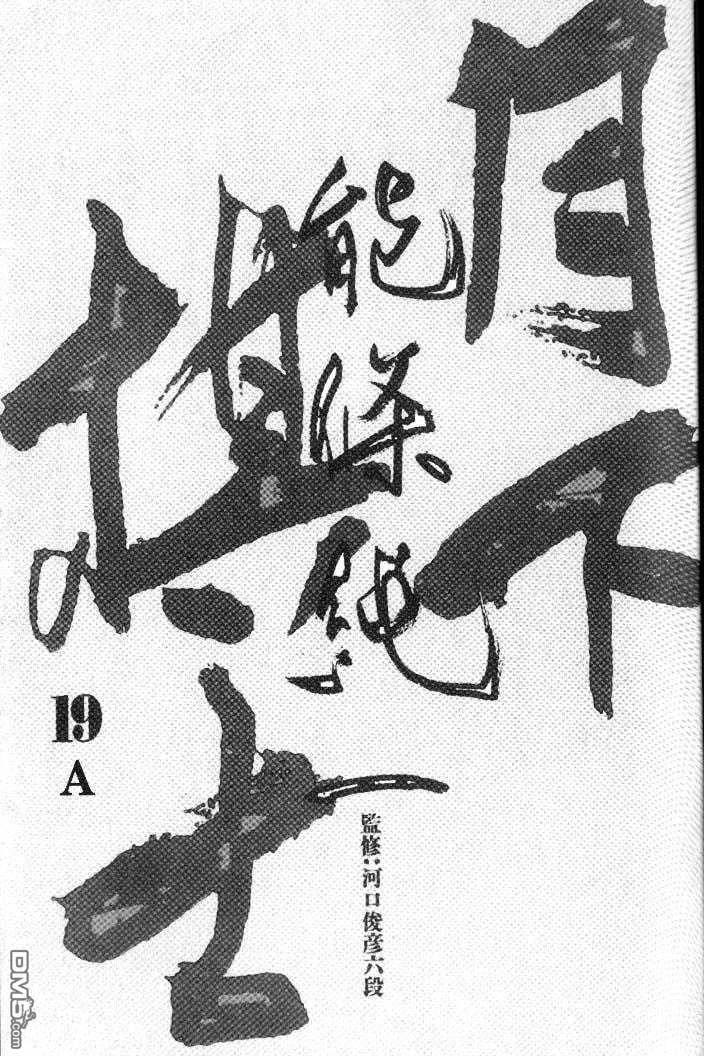 月下
棋士
能條純一
19
A
監修:河口俊彦六段
DM5.com